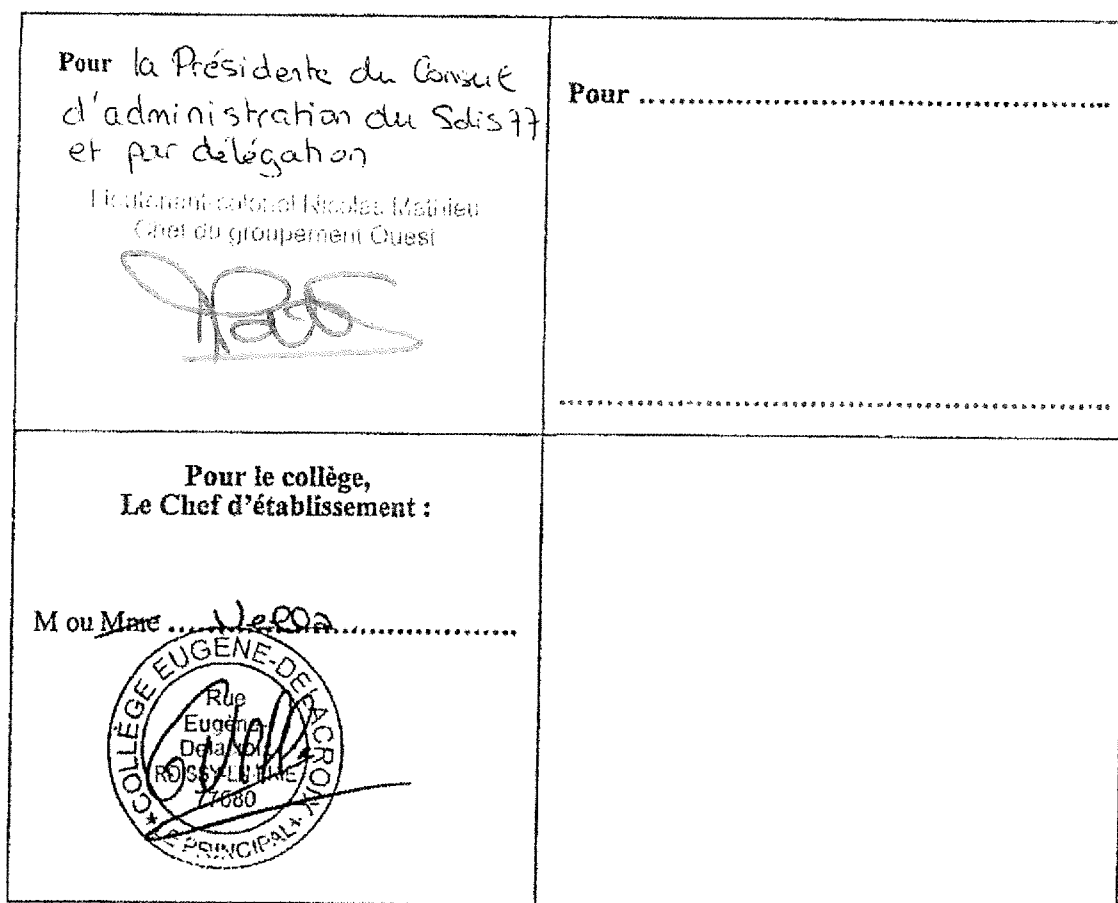 Pour la Présidente du Conseil
d'administration du Sdis 77
et par délégation
Lieutenant-colonel Nicolas Mathieu
Chef du groupement Ouest
Pour ..................................................
..................................................
Pour le collège,
Le Chef d'établissement :
M ou Mme
COLLÈGE EUGÈNE-DELACROIX
Rue
Eugène-
Delacroix
ROISSY-EN-BRIE
77680
LE PRINCIPAL